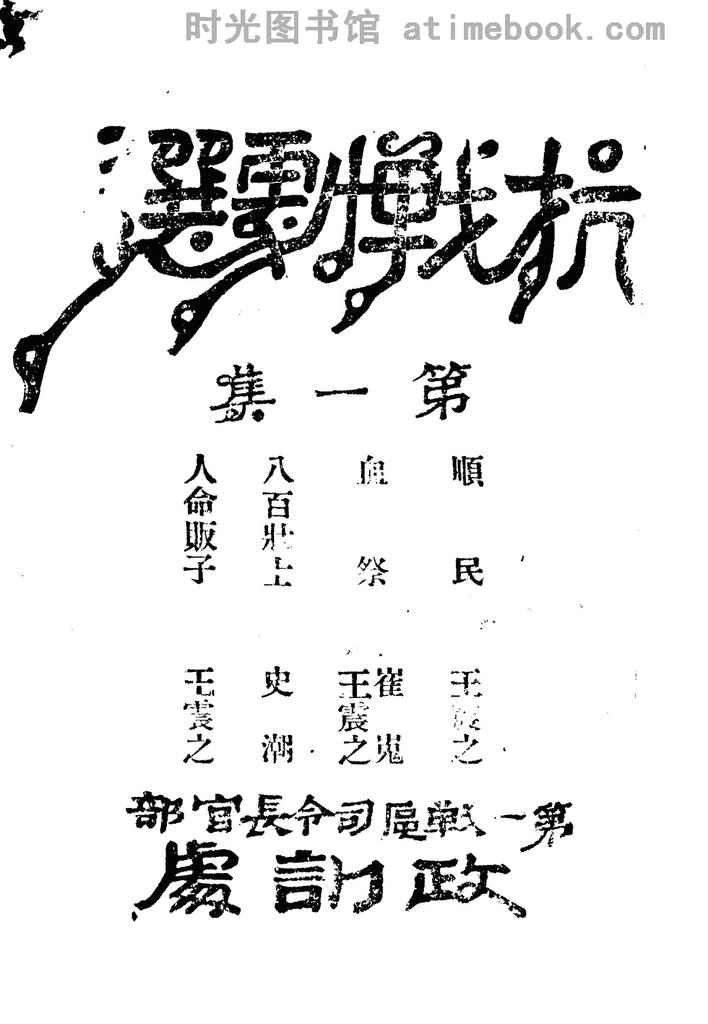 时光图书馆 atimebook.com
抗戰劇選
第一集
順民 王震之
血祭 崔嵬 王震之
八百壯士 史潮
人命販子 王震之
第一戰區司令長官部
政訓處